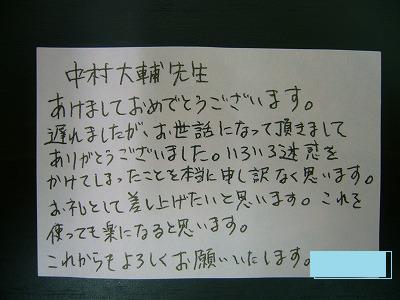 中村大輔先生
あけましておめでとうございます。
遅れましたが、お世話になって頂きまして
ありがとうございました。いろいろ迷惑を
かけてしまったことを本当に申し訳なく思います。
お礼として差し上げたいと思います。これを
使っても楽になると思います。
これからもよろしくお願いいたします。